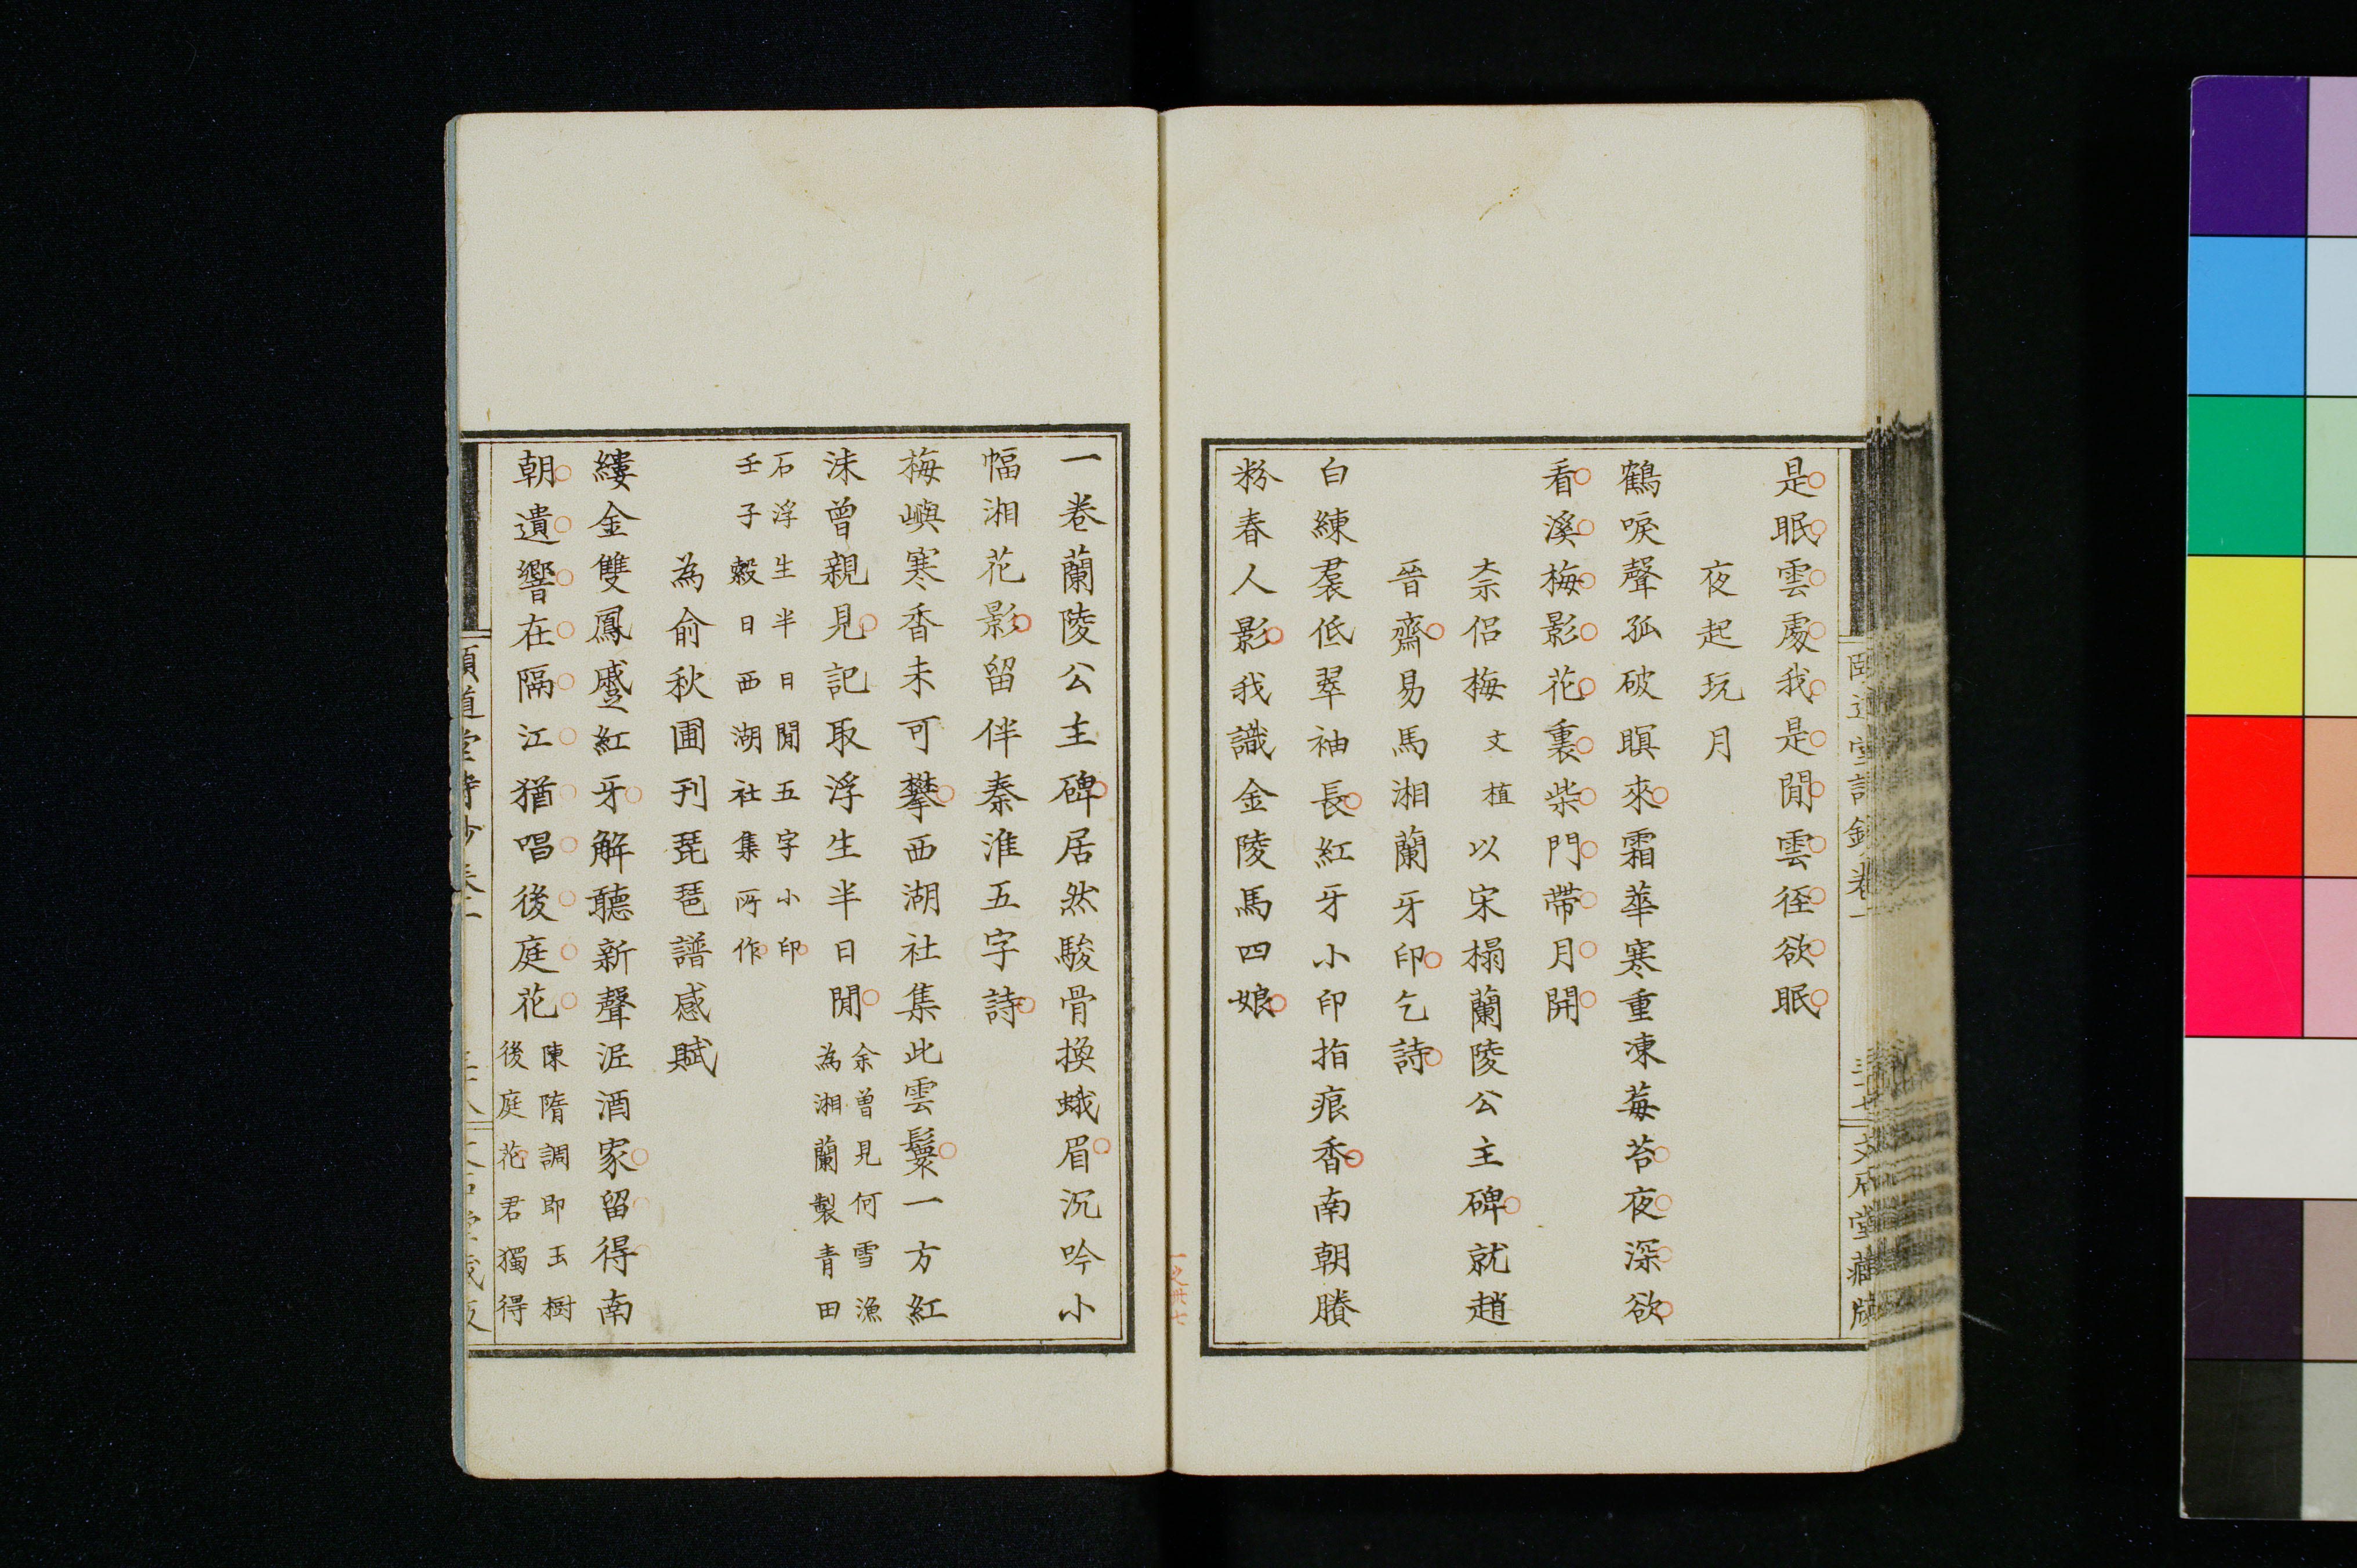 是眠雲處我是閒雲徑欲眠
夜起玩月
鶴唳聲孤破暝來霜華寒重凍莓苔夜深欲
看溪梅影花裏柴門帶月開
柰侶梅文植以宋榻蘭陵公主碑就趙
晉齋易馬湘蘭牙印乞詩
白練裠低翠袖長紅牙小印指痕香南朝賸
粉春人影我識金陵馬四娘
一卷蘭陵公主碑居然駿骨換蛾眉沉吟小
幅湘花影留伴秦淮五字詩
梅嶼寒香未可攀西湖社集此雲鬟一方紅
沬曾親見記取浮生半日閒余曾見何雪漁
為湘蘭製青田
石浮生半日閒五字小印
壬子穀日西湖社集所作
為俞秋圃刊琵琶譜感賦
縷金雙鳳蹙紅牙解聽新聲泥酒家留得南
朝遺響在隔江猶唱後庭花陳隋調即玉樹
後庭花君獨得